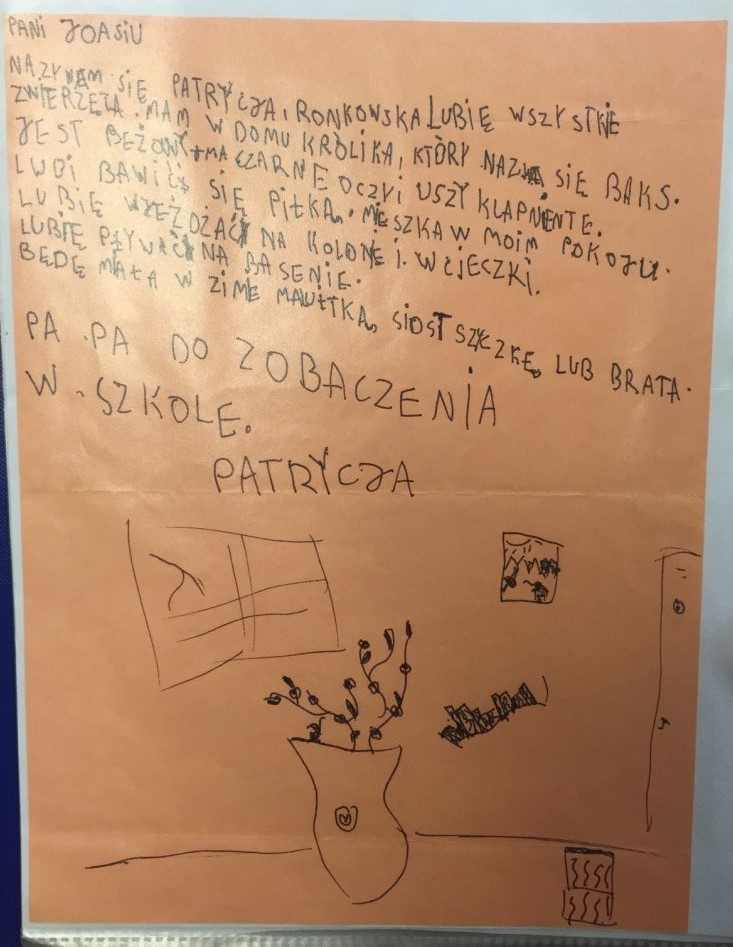 PANI JOASIU
NAZYWAM SIĘ PATRYCJA, RONKOWSKA LUBIĘ WSZYSTKIE
ZWIERZĘTA. MAM W DOMU KRÓLIKA, KTÓRY NAZWA SIĘ BAKS.
JEST BEŻOWY + MA CZARNE OCZY I USZY KLAPNIENTE.
LUBI BAWIĆ SIĘ PIŁKĄ. MIESZKA W MOIM POKOJU.
LUBIĘ NA KOLONIE I WCIECZKI.
LUBIĘ PŁYWAĆ NA BASENIE.
BĘDĘ MAŁA W ZIMĘ MALUTKĄ, SIOSTSZYCZKĘ, LUB BRATA.
PA PA DO ZOBACZENIA
W SZKOLE.
PATRYCJA